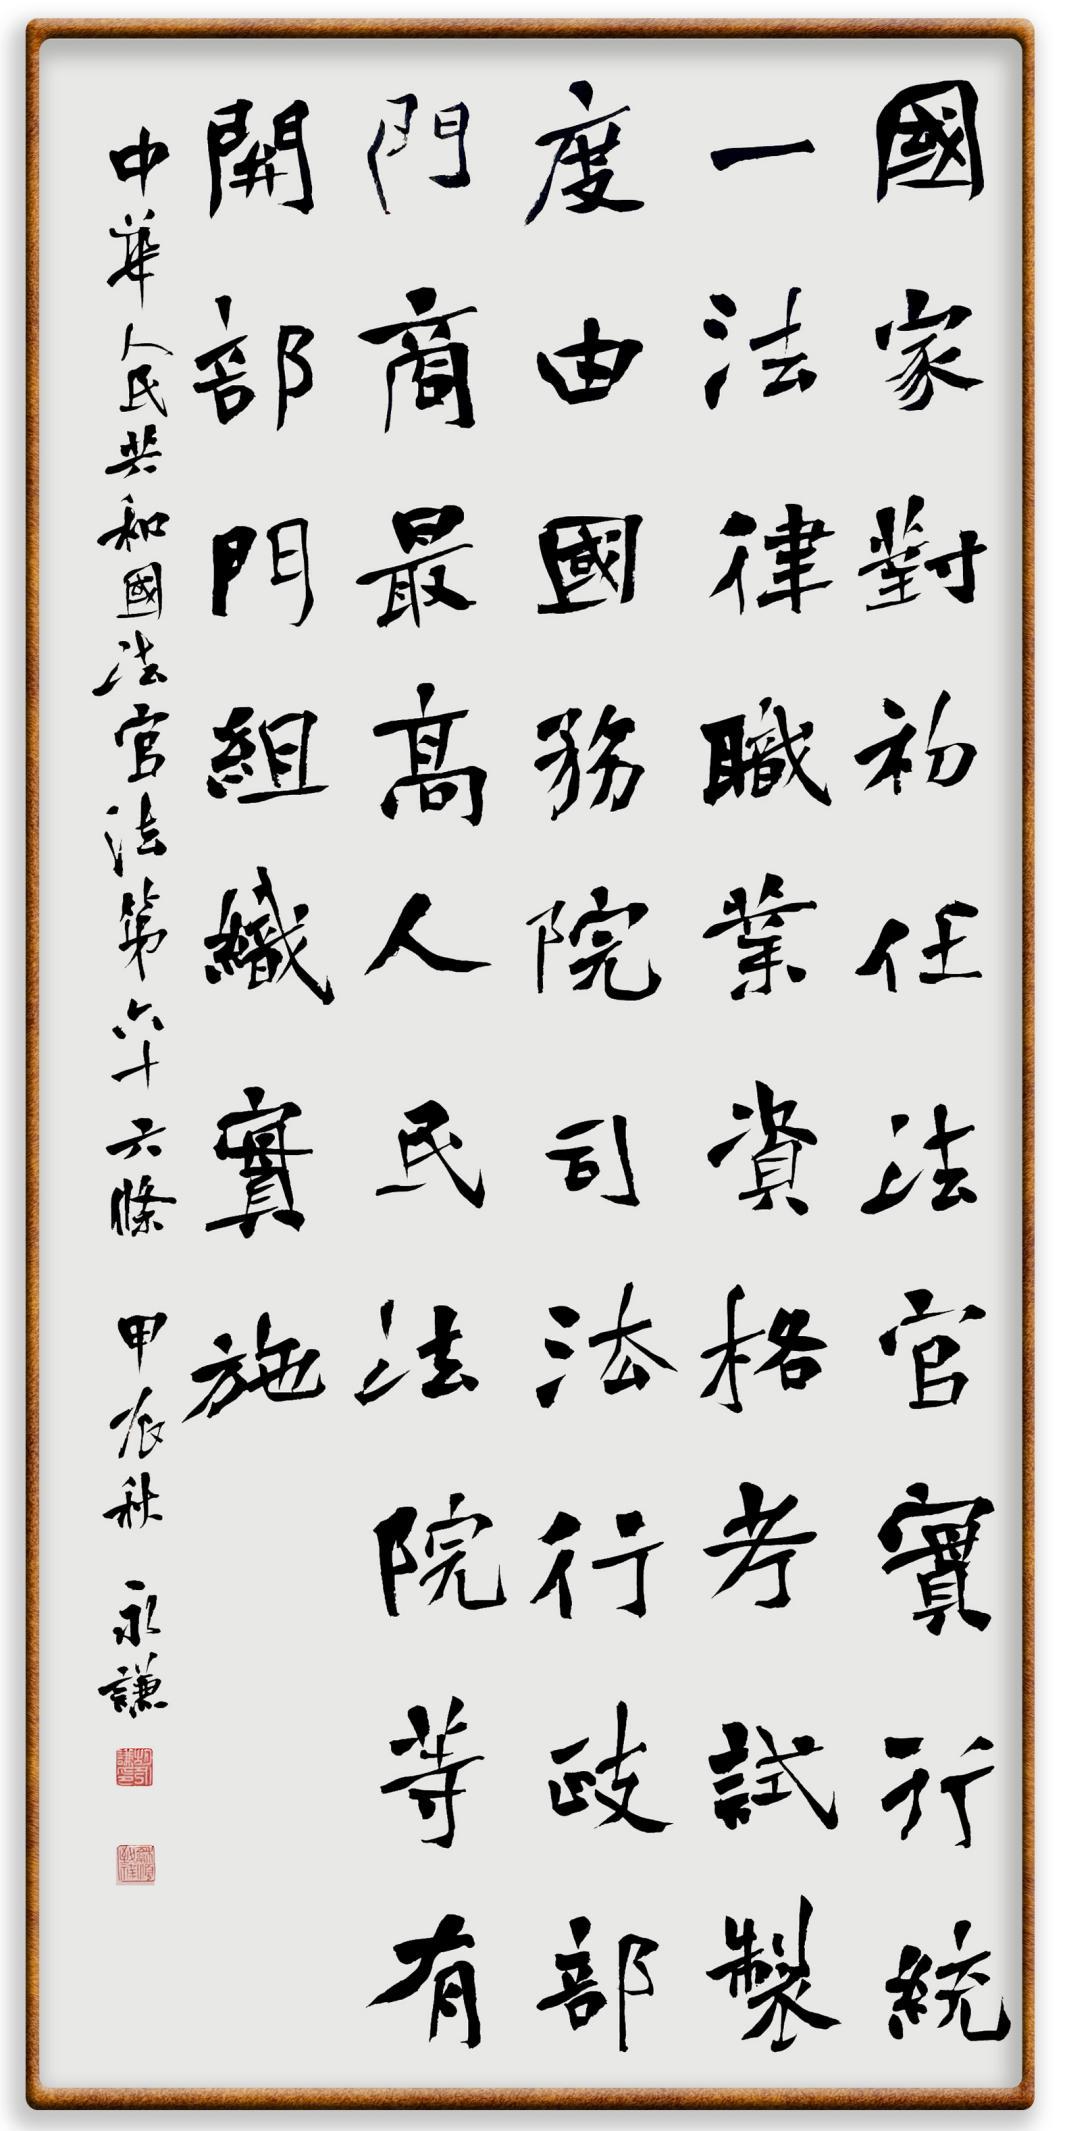 國家對初任法官實行統
一法律職業資格考試製
度由國務院司法行政部
門商最高人民法院等有
開部門組織實施
中華人民共和國法官法第六十六條 甲辰秋 永謙